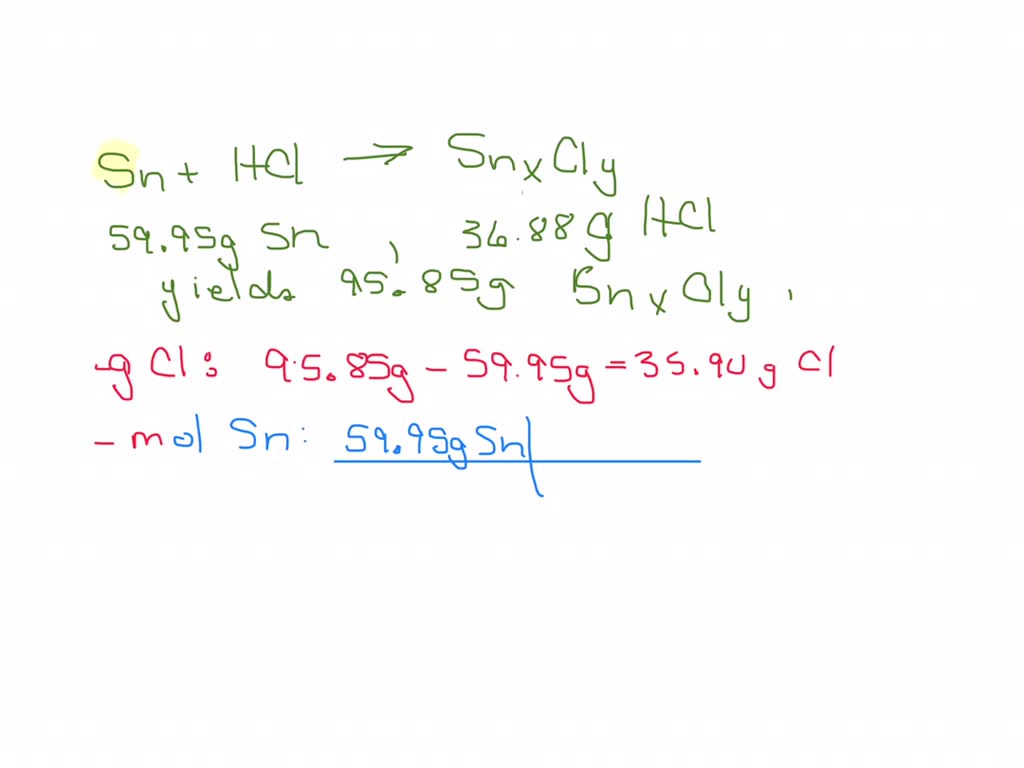 Sn + HCl → SnxCly
59.95g Sn , 36.88g HCl
yields 95.85g SnxCly .
-g Cl: 95.85g - 59.95g = 35.90 g Cl
- mol Sn: 59.95g Sn